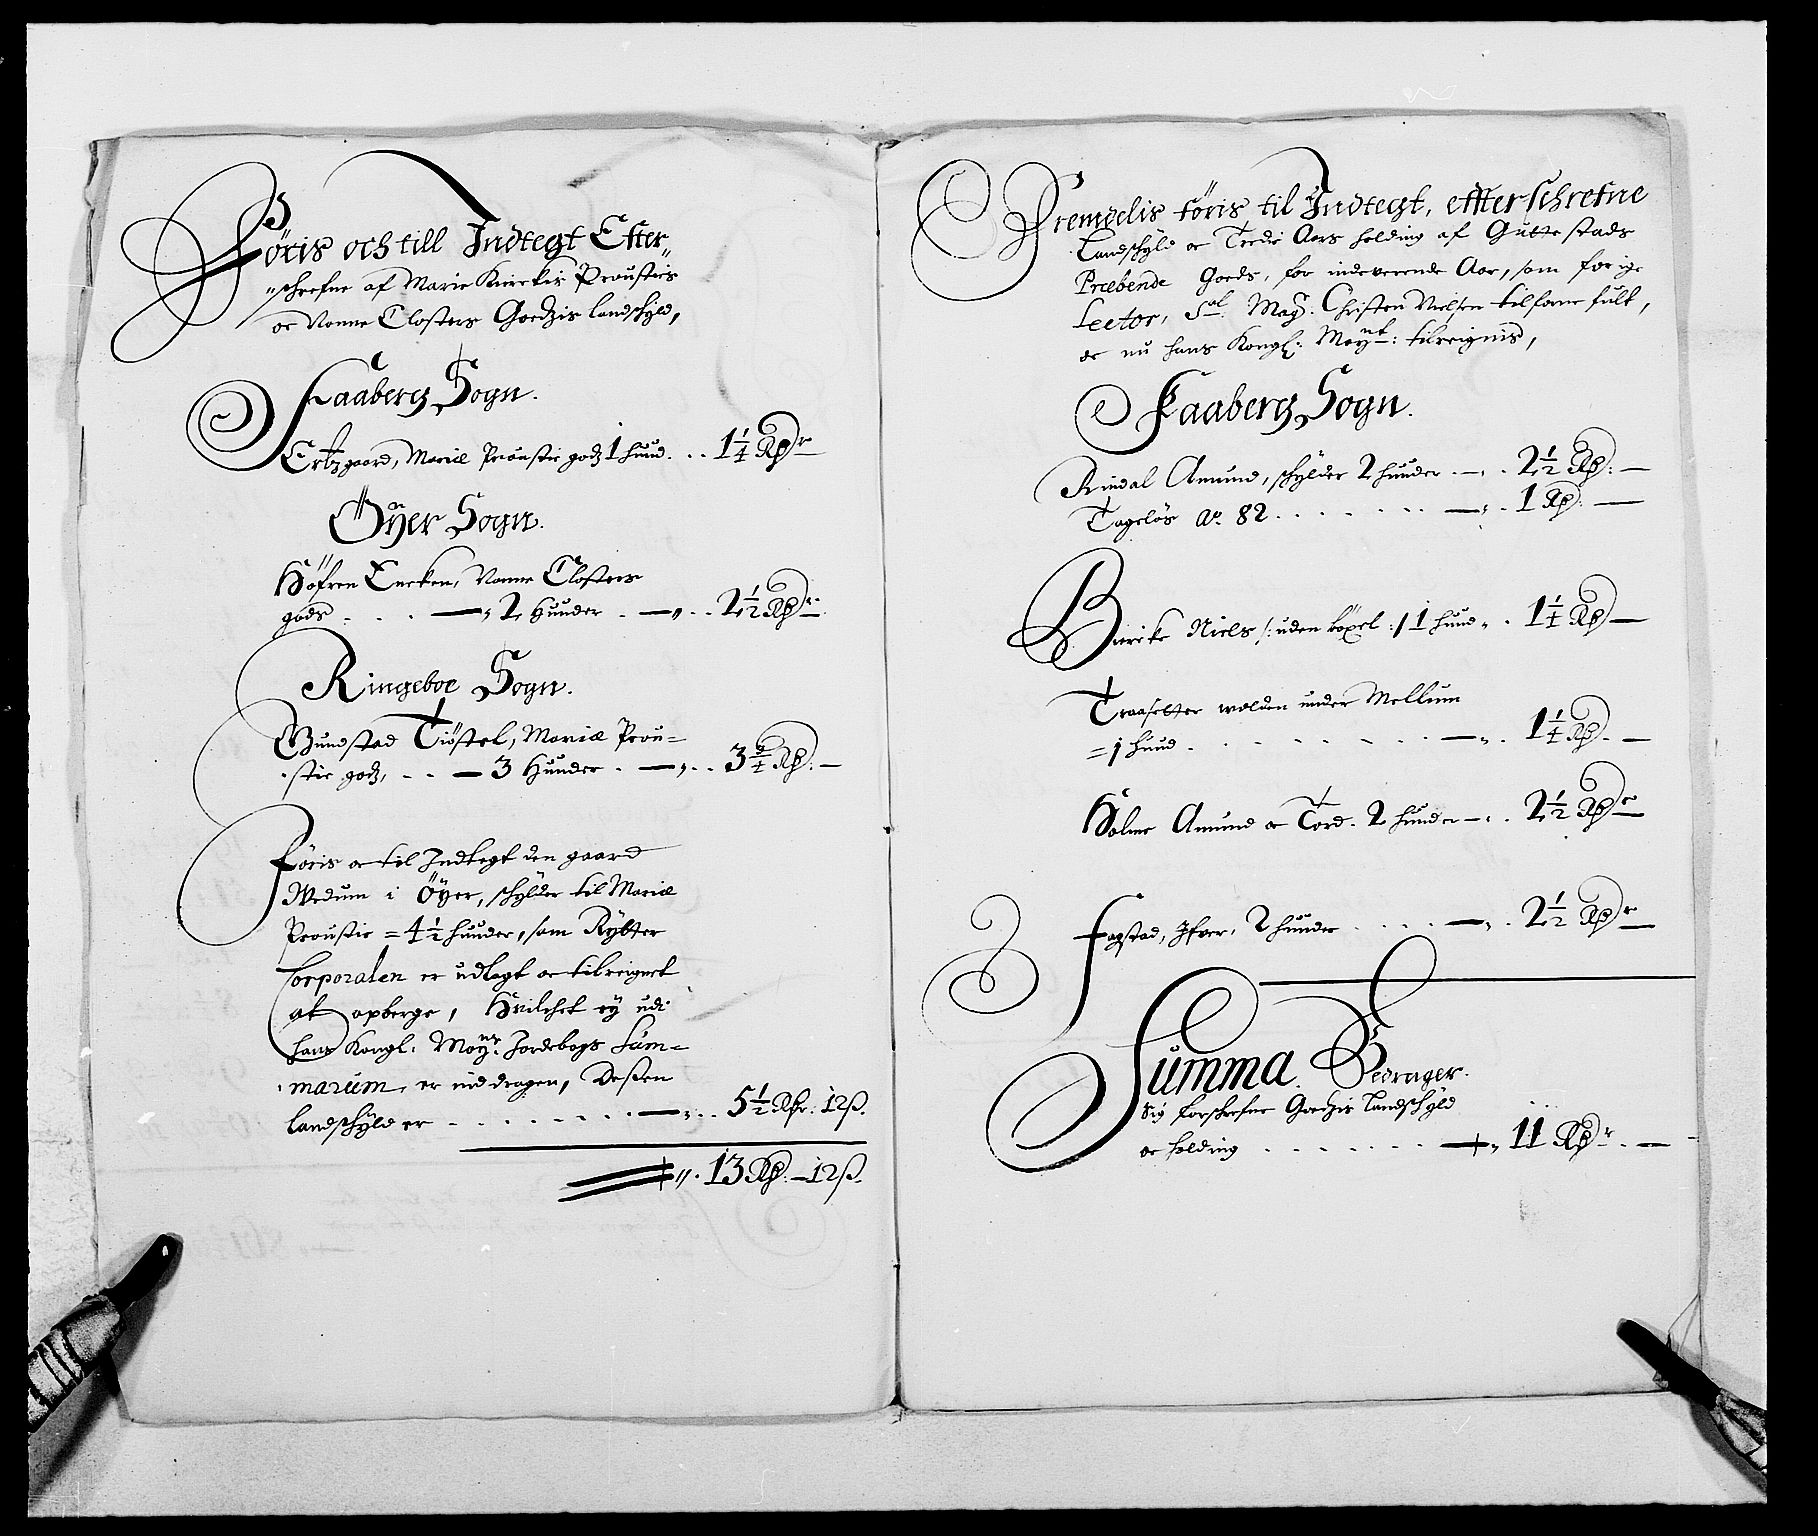 Föris och till Indtegt Efter-
schrefne af Marie Kierkis Proustis
oc Nonne Closters Goedzis landschyld,
Faaberg Sogn.
gaard, Mariæ Proustie godz 1 hund . . . 1 1/4 Rdr
Öyer Sogn.
Nonne Closters
gods . . . — 2 Hunder . — . . 2 1/2 Rdr
Ringeboe Sogn.
Gundstad Tiöstel, Mariæ Prou=
stie godz, . . — 3 Hunder . — . . 3 3/4 Rd. —
Föris oc til Indtegt den gaard
Wedum i Öyer, schylder til Mariæ
Proustie = 4 1/2 hunder, som Rytter
Corporalen er udlagt oc tilreignet
at opberge, Hvilchet ey udi
hans Kongl. Mayts Jordebogs Sum-
marum, er inddragen, Dessen
landschyld er . . . . . . — . . 5 1/2 Rdr. 12 ß.
13 Rd. — 12 ß.
Fremdelis föris til Indtegt, effterschrefne
Landschyld oc Tredie Aars holding af Guttestads
Præbende Goeds, for indeverende Aar, som forige
Lector, Sal. Mag. Christen Nielsen tilforne fult,
oc nu hans Kongl. Mayt: tilreignis,
Faaberg Sogn.
Rindal Amund, schylder 2 hunder . — . . 2 1/2 Rd. —
Togelös Ao 82 . . . . . . — . . 1 Rd. —
Niels /: udenböxel :/ 1 hund . . 1 1/4 Rd —
Traasetter wolden under Mellum
= 1 hund . . . . . . . — . . 1 1/4 Rd. —
Holme Amund oc Tord. 2 hunder — . 2 1/2 Rdr
Fogstad, Ifver, 2 hunder . . . . — . . 2 1/2 Rdr
Summa Bedrager
sig forschrefne Goedzis Landschyld
oc holding . . . . . . — 11 Rdr. —